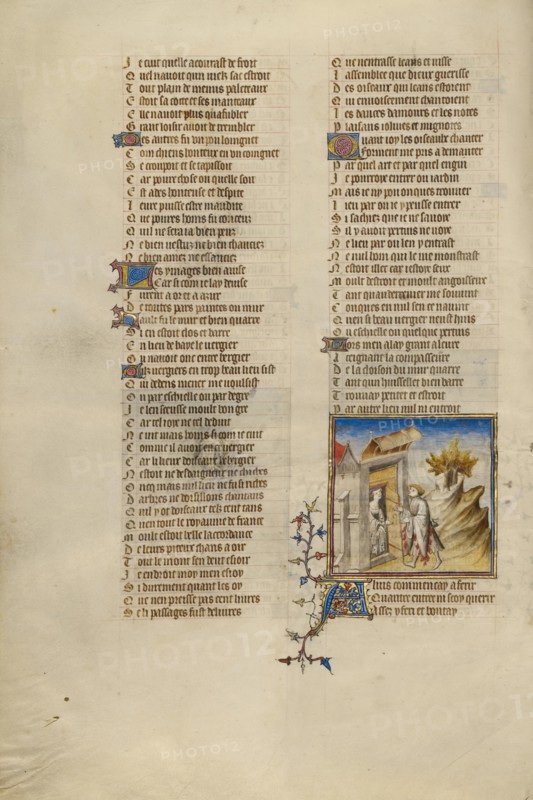 Je cuit quelle acourast de froit
Quel nauoit qun uielz sac estroit
Tout plain de menus paleteaux
Cestoit sa cotte et ses manteaux
Ele nauoit plus quafubler
Grant loisir auoit de trembler
Des autres fu un pou loingnet
Com chiens honteux en un coingnet
Se croupoit et se tapissoit
Car poure chose ou quelle soit
Est ades honteuse et despite
Leure puisse estre maudite
Que poures homs fu conceuz
Quil ne sera ia bien peuz
Ne bien uestuz ne bien chauciez
Ne bien amez ne essauciez
Les ymages bien auise
Car si com ie lay deuise
Furent a or et a azur
De toutes pars paintes ou mur
Hault fu le mur et bien quarre
Si en estoit clos et barre
En lieu de haye le vergier
Qui nauoit onc entre bergier
Cilz vergiers en trop beau lieu sist
Qui dedens mener me voulsist
Ou par eschielle ou par degre
Je len sceusse moult bon gre
Car tel ioye ne tel deduit
Neut mais homs si com ie cuit
Comme il auoit en ce vergier
Car li lieux doiseaux herbergier
Nestoit ne desdaigneux ne chiches
Onc mais nul lieu ne fu si riches
Darbres ne doisillons chantans
Quil y ot doiseaux telz cent tans
Quen tout le royaume de france
Moult estoit belle laccordance
De leurs piteux chans a oir
Tout le mont sen deust esioir
Je endroit moy men esioy
Si durement quant les oy
Que nen preisse pas cent liures
Se li passages fust deliures
Que nentrasse leans et veisse
Lassemblee que dieux guerisse
Des oiseaux qui leans estoient
Qui enuoisement chantoient
Les dances damours et les notes
Plaisans iolyues et mignotes
Quant ioy les oiseaulx chanter
Forment me pris a demanter
Par quel art et par quel engin
Je pourroye entrer ou iardin
Mais ie ny pou onques trouuer
Lieu par ou ie y peusse entrer
Si sachiez que ie ne sauoie
Sil y auoit pertuis ne voye
Ne lieu par ou len y entrast
Ne nul hom qui le me monstrast
Nestoit illec car iestoye seux
Moult destroit et moult angoisseux
Tant quau derrenier me souuint
Conques en nul sen ce nauint
Quen si beau vergier neust huis
Ou eschielle ou quelque pertuis
Lors men alay grant aleure
Aceignant la compasseure
De la cloison du mur quarre
Tant qun huisselet bien barre
Trouuay petitet et estroit
Par autre lieu nul ny entroit
A luis commencay a ferir
Quautre entree ny scoy querir
Assez y feri et boutay